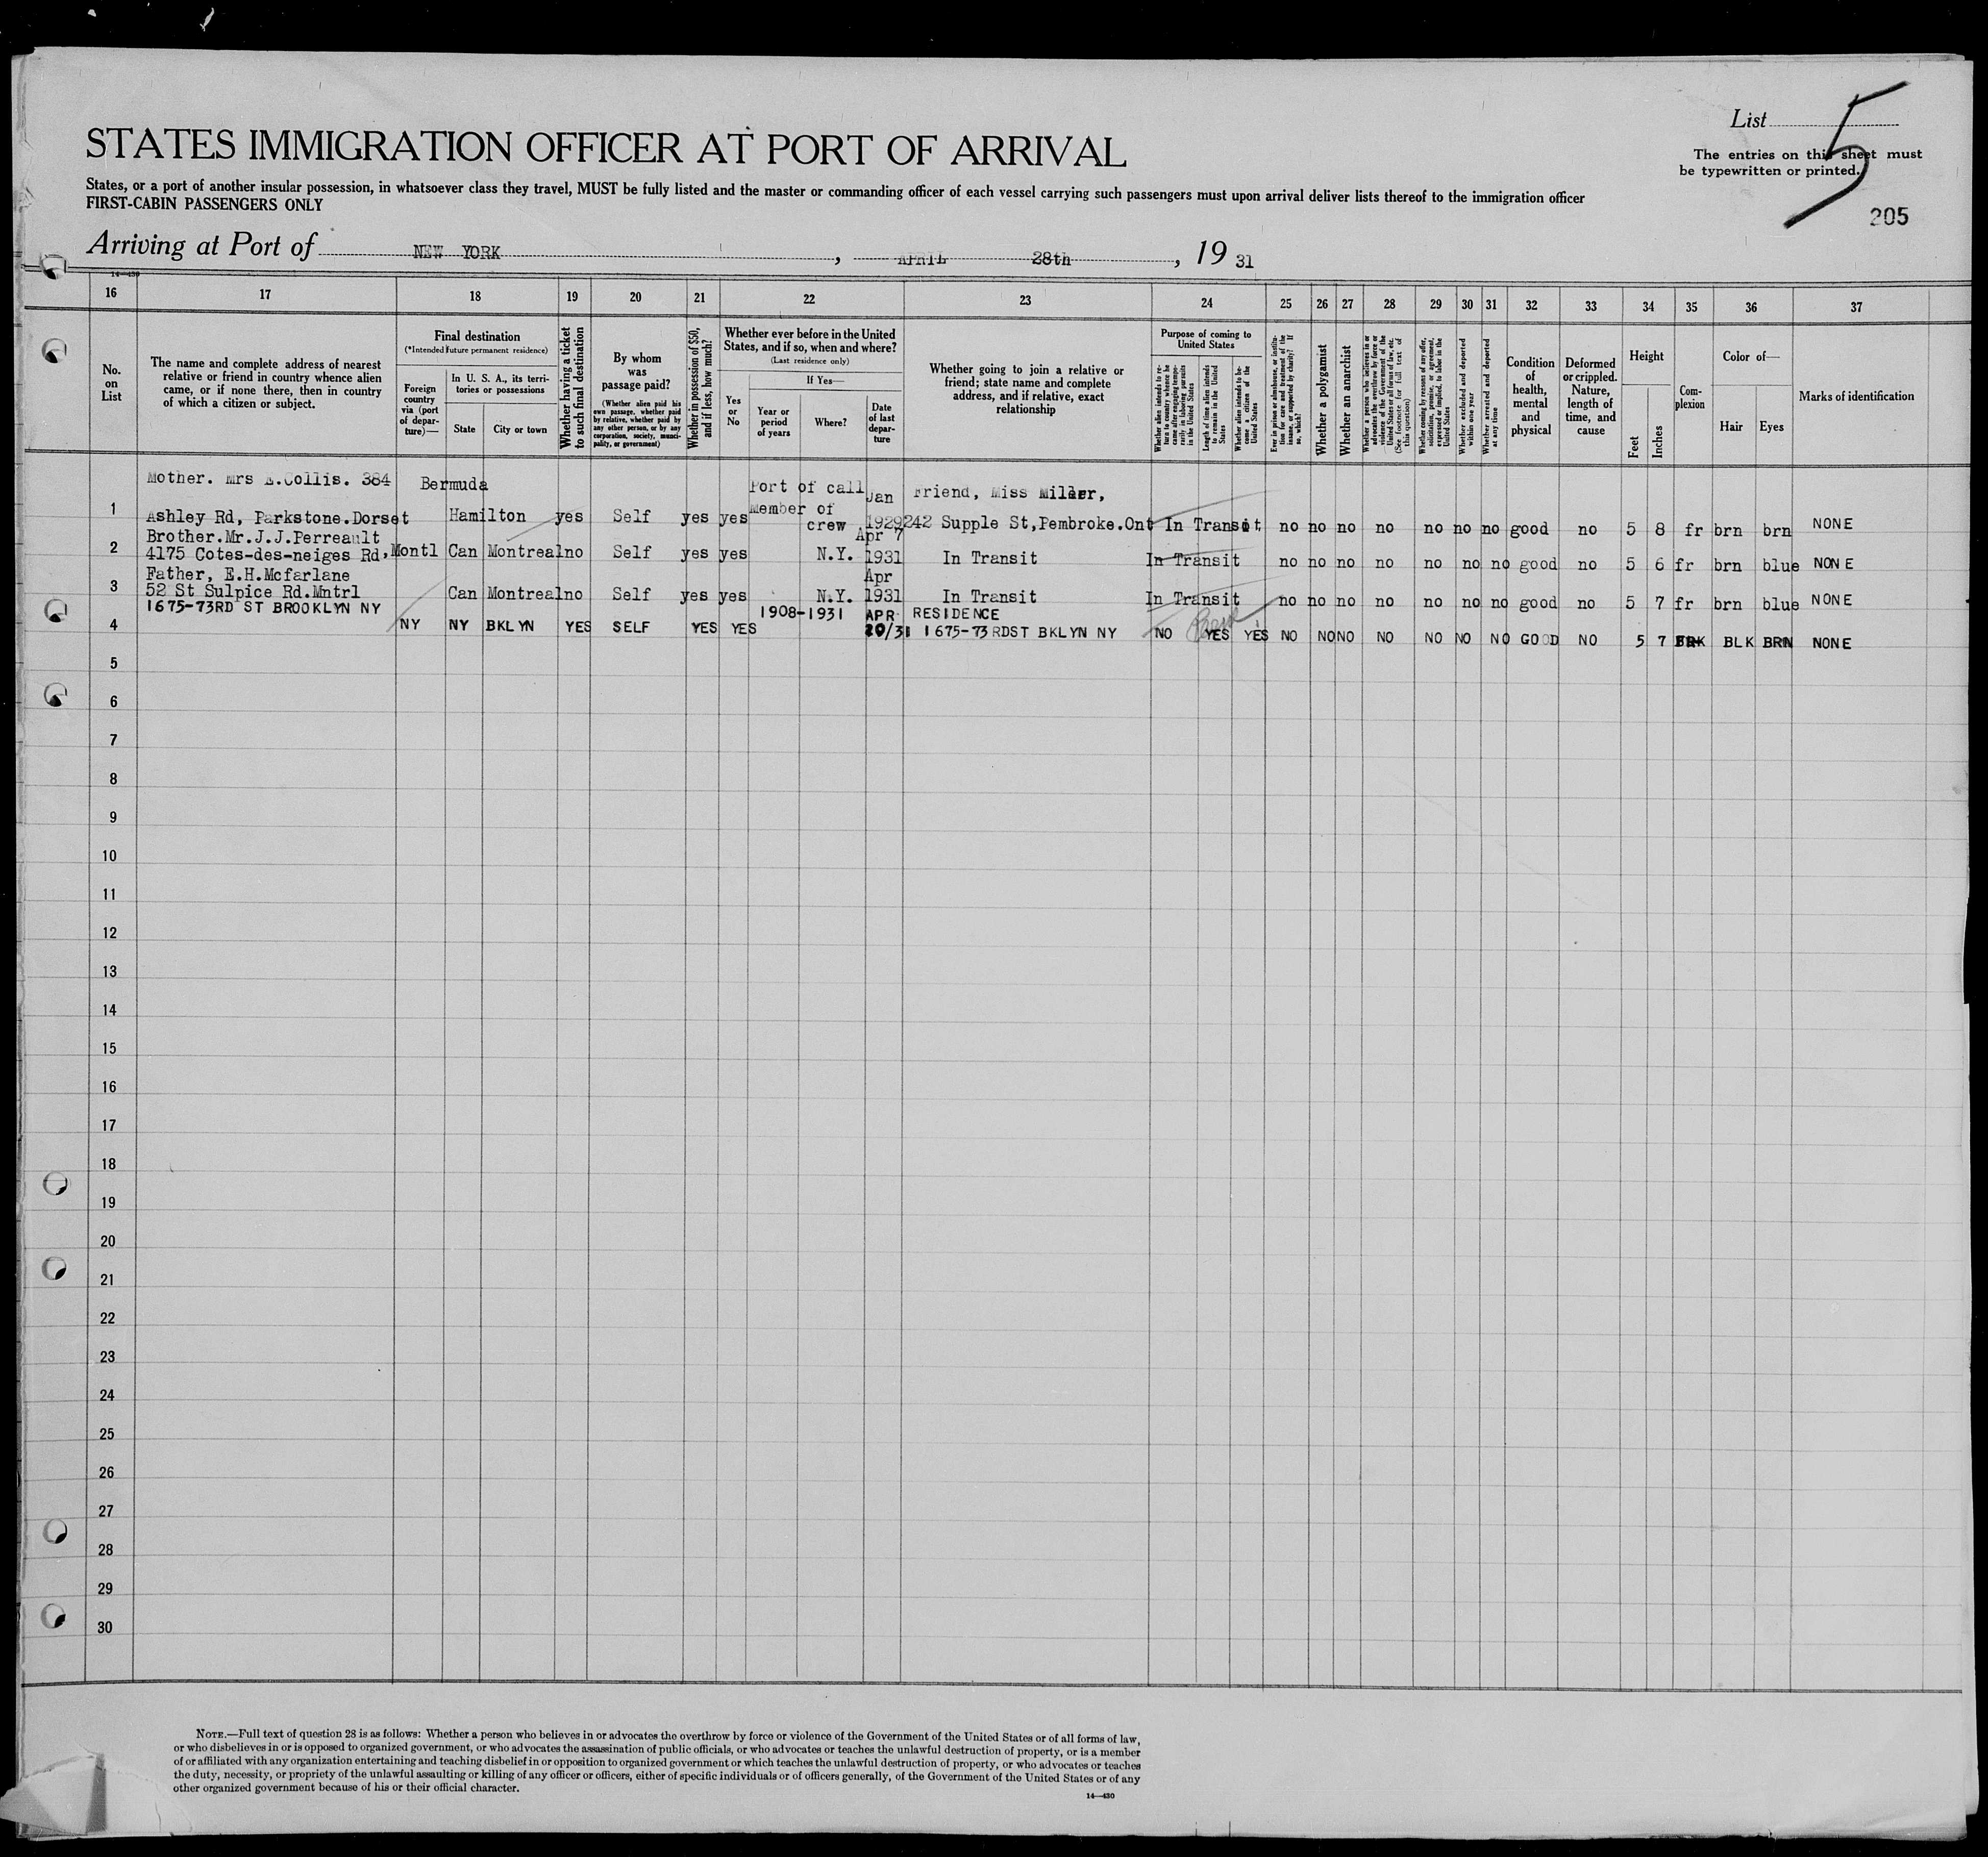 List 5
The entries on this sheet must
be typewritten or printed.
205
STATES IMMIGRATION OFFICER AT PORT OF ARRIVAL
States, or a port of another insular possession, in whatsoever class they travel, MUST be fully listed and the master or commanding officer of each vessel carrying such passengers must upon arrival deliver lists thereof to the immigration officer
FIRST-CABIN PASSENGERS ONLY
Arriving at Port of NEW YORK, APRIL 28th, 19 31
14—430
16 17 18 19 20 21 22 23 24 25 26 27 28 29 30 31 32 33 34 35 36 37
No. on List
The name and complete address of nearest
relative or friend in country whence alien
came, or if none there, then in country
of which a citizen or subject.
Final destination
(*Intended future permanent residence)
Foreign country via (port of departure)—
In U. S. A., its territories or possessions
State
City or town
Whether having a ticket to such final destination
By whom was passage paid?
(Whether alien paid his own passage, whether paid by relative, whether paid by any other person, or by any corporation, society, municipality, or government)
Whether in possession of $50, and if less, how much?
Whether ever before in the United States, and if so, when and where?
(Last residence only)
Yes or No
If Yes—
Year or period of years
Where?
Date of last departure
Whether going to join a relative or
friend; state name and complete
address, and if relative, exact
relationship
Purpose of coming to United States
Whether alien intends to return to country whence he came after engaging temporarily in laboring pursuits in the United States
Length of time alien intends to remain in the United States
Whether alien intends to become a citizen of the United States
Ever in prison or almshouse, or institution for care and treatment of the insane, or supported by charity? If so, which?
Whether a polygamist
Whether an anarchist
Whether a person who believes in or advocates the overthrow by force or violence of the Government of the United States or all forms of law, etc. (See footnote for full text of this question)
Whether coming by reasons of any offer, solicitation, promise, or agreement, expressed or implied, to labor in the United States
Whether excluded and deported within one year
Whether arrested and deported at any time
Condition of health, mental and physical
Deformed or crippled. Nature, length of time, and cause
Height
Feet
Inches
Complexion
Color of—
Hair
Eyes
Marks of identification
Mother. Mrs E.Collis. 384 Bermuda Port of call Jan Friend, Miss Miller,
1 Ashley Rd, Parkstone.Dorset Hamilton yes Self yes yes Member of crew 1929 242 Supple St,Pembroke.Ont In Transit no no no no no no no good no 5 8 fr brn brn NONE
Brother.Mr.J.J.Perreault Apr 7
2 4175 Cotes-des-neiges Rd,Montl Can Montreal no Self yes yes N.Y. 1931 In Transit In Transit no no no no no no no good no 5 6 fr brn blue NONE
Father, E.H.Mcfarlane Apr
3 52 St Sulpice Rd.Mntrl Can Montreal no Self yes yes N.Y. 1931 In Transit In Transit no no no no no no no good no 5 7 fr brn blue NONE
1675-73RD ST BROOKLYN NY 1908-1931 APR RESIDENCE
4 NY NY BKLYN YES SELF YES YES 20/31 1675-73RDST BKLYN NY NO YES YES NO NO NO NO NO NO NO GOOD NO 5 7 BLK BRN NONE
5
6
7
8
9
10
11
12
13
14
15
16
17
18
19
20
21
22
23
24
25
26
27
28
29
30
NOTE.—Full text of question 28 is as follows: Whether a person who believes in or advocates the overthrow by force or violence of the Government of the United States or of all forms of law,
or who disbelieves in or is opposed to organized government, or who advocates the assassination of public officials, or who advocates or teaches the unlawful destruction of property, or is a member
of or affiliated with any organization entertaining and teaching disbelief in or opposition to organized government or which teaches the unlawful destruction of property, or who advocates or teaches
the duty, necessity, or propriety of the unlawful assaulting or killing of any officer or officers, either of specific individuals or of officers generally, of the Government of the United States or of any
other organized government because of his or their official character.
14—430